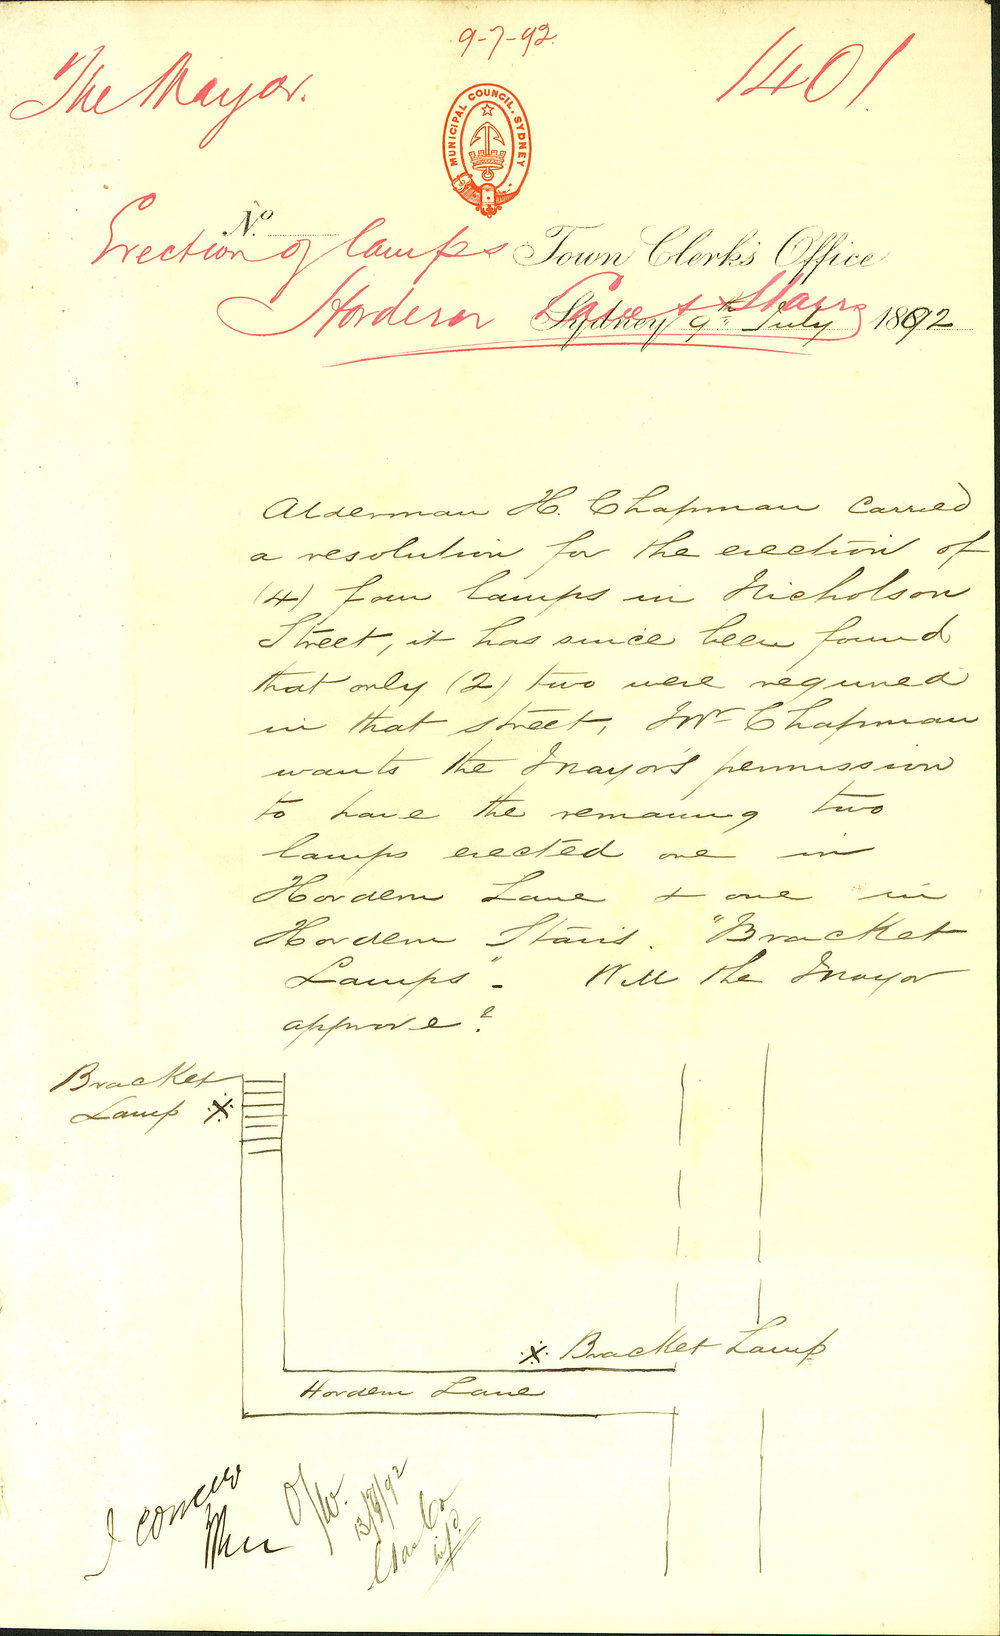 9-7-92.
The Mayor.
1401.
MUNICIPAL COUNCIL. SYDNEY
No.
Erection of lamps
Town Clerk's Office
Hordern Lane & Stairs
Sydney 9th July 1892
Alderman H. Chapman carried
a resolution for the erection of
(4) four lamps in Nicholson
Street, it has since been found
that only (2) two were required
in that street, Mr Chapman
wants the Mayor's permission
to have the remaing two
lamps erected one in
Hordern Lane & one in
Hordern Stairs. "Bracket
Lamps" - Will the Mayor
approve?
Bracket
Lamp X
X Bracket Lamp
Hordern Lane
I concur
O/W.
Gas Co